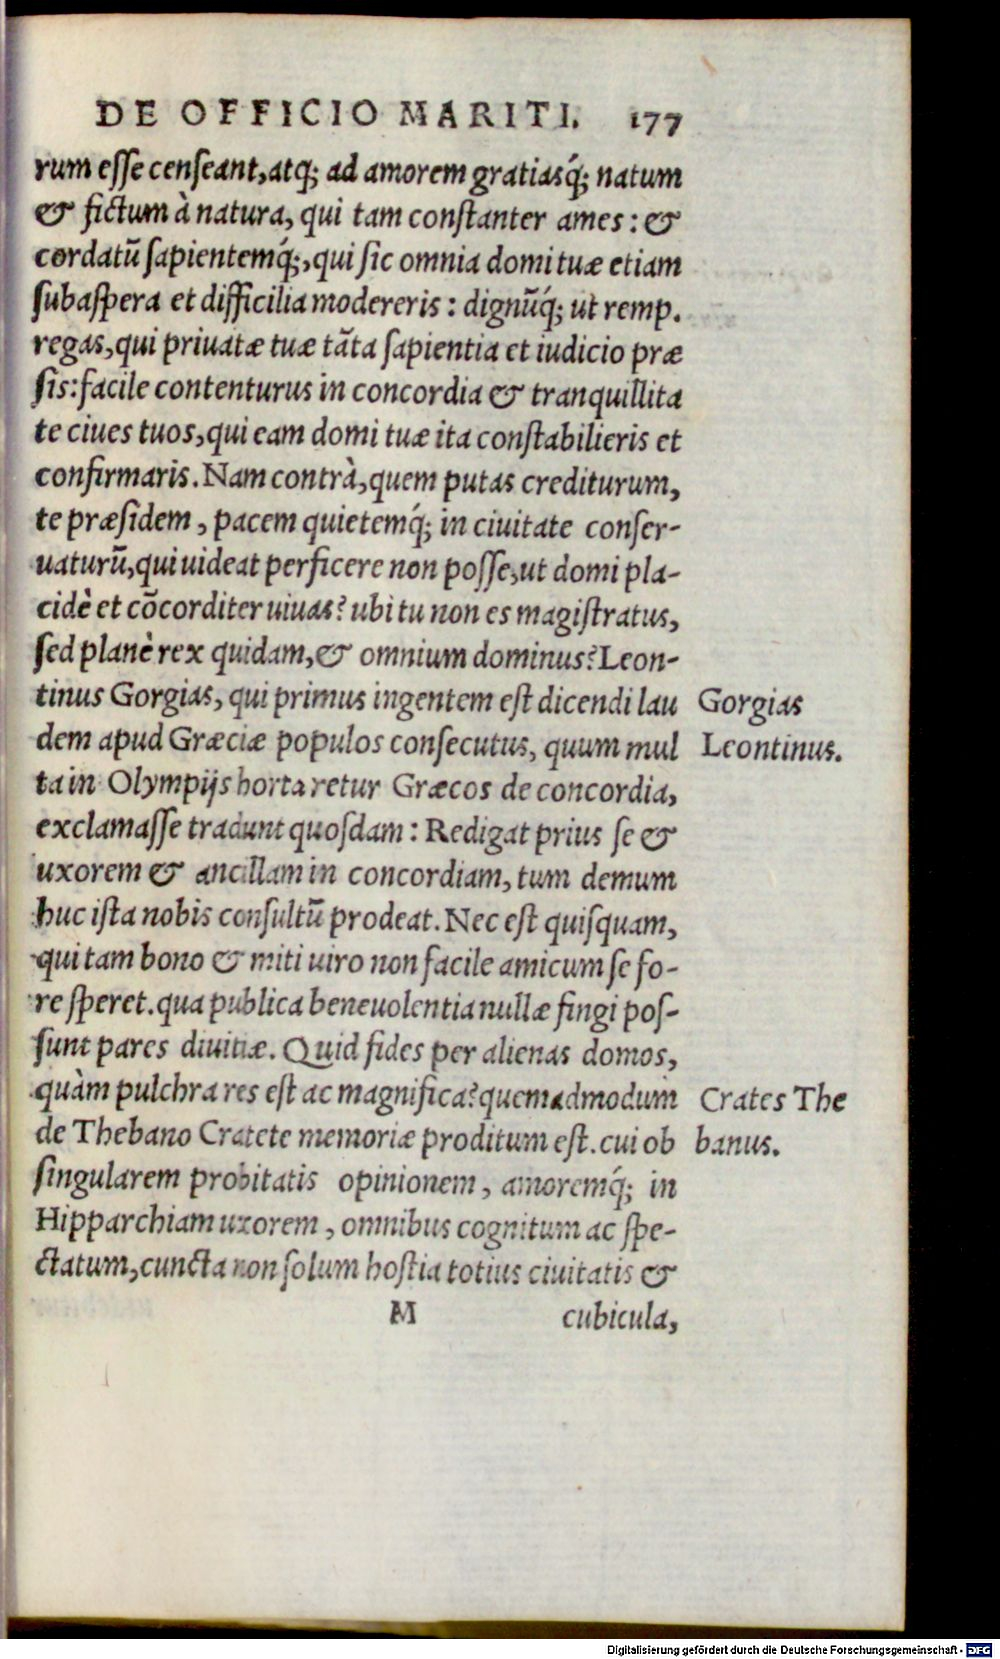 DE OFFICIO MARITI. 177
rum esse censeant, atq; ad amorem gratiasq́; natum
& fictum à natura, qui tam constanter ames: &
cordatũ sapientemq́;, qui sic omnia domi tuæ etiam
subaspera et difficilia modereris: dignũq́; ut remp.
regas, qui priuatæ tuæ tãta sapientia et iudicio præ
sis: facile contenturus in concordia & tranquillita
te ciues tuos, qui eam domi tuæ ita constabilieris et
confirmaris. Nam contrà, quem putas crediturum,
te præsidem, pacem quietemq́; in ciuitate conser-
uaturũ, qui uideat perficere non posse, ut domi pla-
cidè et cõcorditer uiuas? ubi tu non es magistratus,
sed planè rex quidam, & omnium dominus? Leon-
tinus Gorgias, qui primus ingentem est dicendi lau
Gorgias
dem apud Græciæ populos consecutus, quum mul
Leontinus.
ta in Olympijs hortaretur Græcos de concordia,
exclamasse tradunt quosdam: Redigat prius se &
uxorem & ancillam in concordiam, tum demum
huc ista nobis consultũ prodeat. Nec est quisquam,
qui tam bono & miti uiro non facile amicum se fo-
re speret. qua publica beneuolentia nullæ fingi pos-
sunt pares diuitiæ. Quid fides per alienas domos,
quàm pulchra res est ac magnifica? quemadmodum
Crates The
de Thebano Cratete memoriæ proditum est. cui ob
banus.
singularem probitatis opinionem, amoremq́; in
Hipparchiam uxorem, omnibus cognitum ac spe-
ctatum, cuncta non solum hostia totius ciuitatis &
M cubicula,
Digitalisierung gefördert durch die Deutsche Forschungsgemeinschaft - DFG